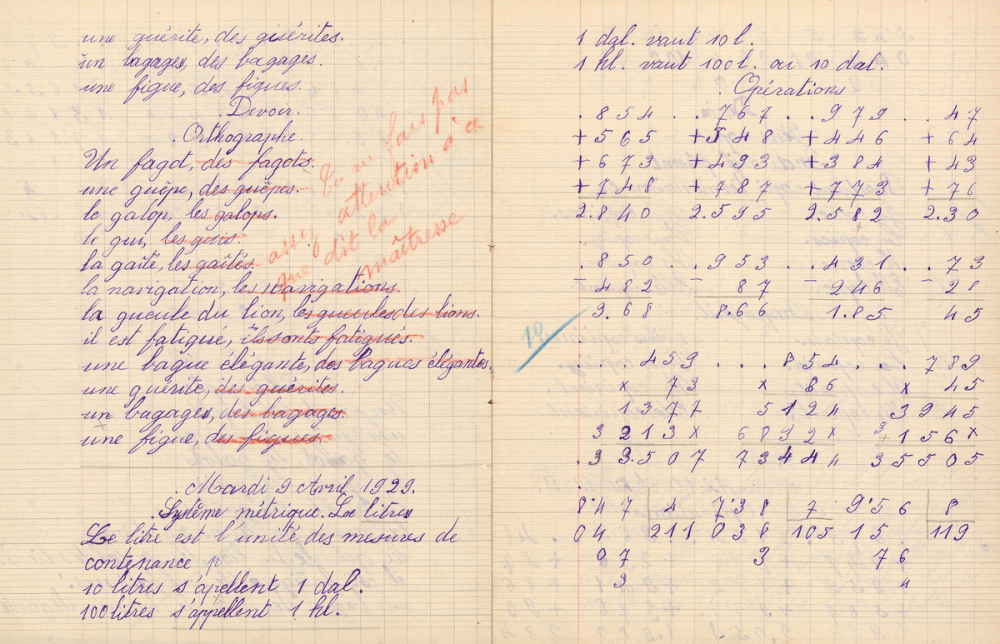 une guérite, des guérites.
un bagages, des bagages.
une figue, des figues.
Devoir.
Orthographe.
Un fagot, des fagots.
une guêpe, des guêpes.
le galop, les galops.
le gui, les guis.
la gaîté, les gaîtés.
la navigation, les navigations.
la gueule du lion, les gueules des lions.
il est fatigué, ils sonts fatigués.
une bague élégante, des bagues élégantes.
une guérite, des guérites.
un bagages, des bagages.
une figue, des figues.
Tu ne fais pas
assez attention à ce
que dit la
maîtresse
Mardi 9 Avril 1929.
Système métrique. Le litre
Le litre est l'unité des mesures de
contenance
10 litres s'apellent 1 dal.
100 litres s'appellent 1 hl.
10
1 dal. vaut 10 l.
1 hl. vaut 100 l. ou 10 dal.
Opérations
. 854 . . 767 . . 979 . . 47
+ 565 + 548 + 446 + 64
+ 673 + 493 + 384 + 43
+ 748 + 787 + 773 + 76
2.840 2.595 2.582 2.30
. 850 . . 953 . . 431 . . 73
- 482 - 87 - 246 - 28
3.68 8.66 1.85 45
. . . 459 . . . 854 . . . 789
x 73 x 86 x 45
1377 5124 3945
3213x 6832x 3156x
. 33.507 73444 35505
8'47 4 7'38 7 9'56 8
04 211 038 105 15 119
07 3 76
3 4